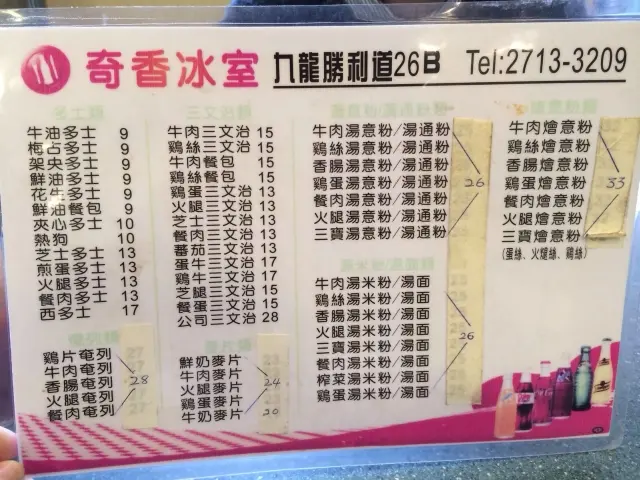 奇香冰室 九龍勝利道26B Tel:2713-3209
牛油多士 9
梅占多士 9
架央多士 9
鮮油多士 9
花生多士 9
鮮油餐包 9
夾心多士 10
熱狗 10
芝士多士 13
煎蛋多士 13
火腿多士 13
餐肉多士 13
西多士 17
牛肉三文治 15
鷄絲三文治 15
牛肉餐包 15
鷄絲餐包 15
鷄蛋三文治 13
火腿三文治 13
芝士三文治 13
餐肉三文治 13
番茄三文治 13
蛋牛三文治 17
鷄牛三文治 17
芝腿三文治 15
餐蛋三文治 15
公司三文治 28
牛肉湯意粉/湯通粉
鷄絲湯意粉/湯通粉
香腸湯意粉/湯通粉
鷄蛋湯意粉/湯通粉 26
餐肉湯意粉/湯通粉
火腿湯意粉/湯通粉
三寶湯意粉/湯通粉
牛肉燴意粉
鷄絲燴意粉
香腸燴意粉
鷄蛋燴意粉 33
餐肉燴意粉
火腿燴意粉
三寶燴意粉
(蛋絲、火燴絲、鷄絲)
牛肉湯米粉/湯面
鷄絲湯米粉/湯面
香腸湯米粉/湯面
火腿湯米粉/湯面 26
三寶湯米粉/湯面
餐肉湯米粉/湯面
榨菜湯米粉/湯面
鷄蛋湯米粉/湯面
鷄片奄列
牛肉奄列
香腸奄列 28
火腿奄列
餐肉奄列
鮮奶麥片
牛肉麥片
火腿麥片 24
鷄蛋麥片
牛奶麥片 20